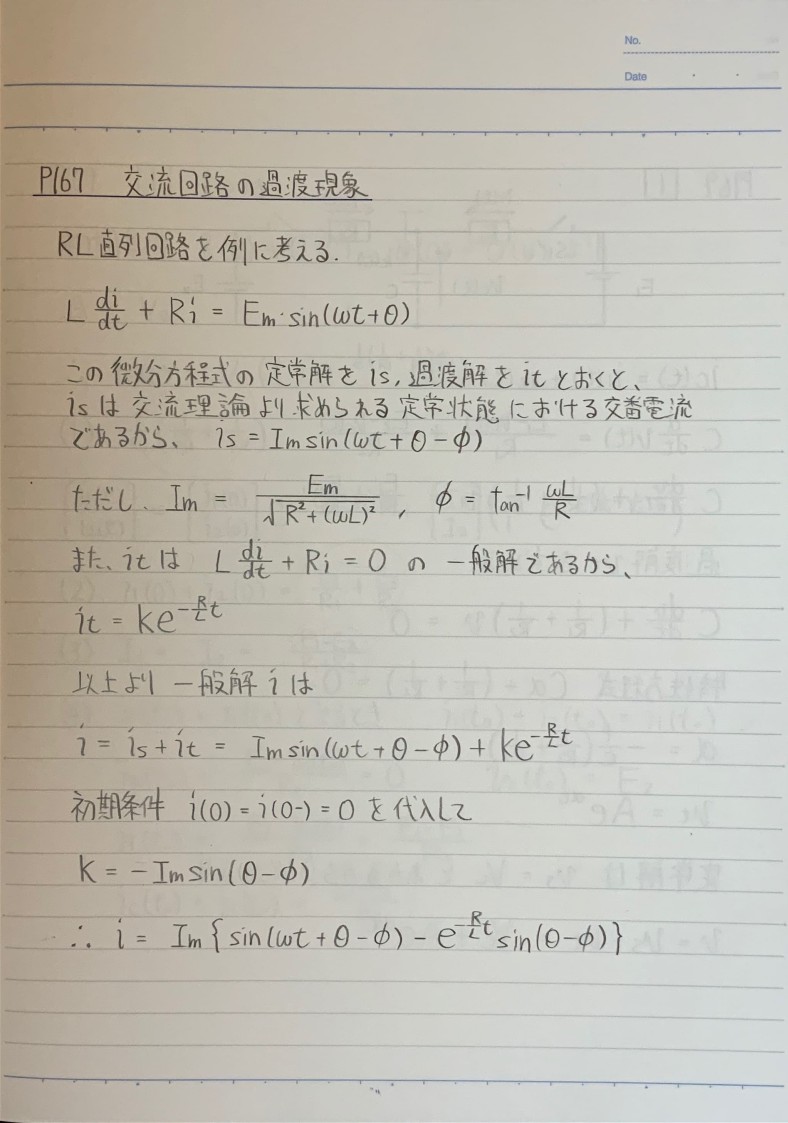 No.
Date
P167 交流回路の過渡現象
RL直列回路を例に考える.
L di/dt + Ri = Em・sin(ωt+θ)
この微分方程式の定常解をis,過渡解をitとおくと、
isは交流理論より求められる定常状態における交番電流
であるから、 is = Imsin(ωt+θ-φ)
ただし、Im = Em/√(R²+(ωL)²) , φ = tan⁻¹ ωL/R
また、itは L di/dt + Ri = 0 の 一般解であるから、
it = ke^(-R/L t)
以上より 一般解 i は
i = is + it = Imsin(ωt+θ-φ) + ke^(-R/L t)
初期条件 i(0) = i(0-) = 0 を代入して
k = -Imsin(θ-φ)
∴ i = Im{sin(ωt+θ-φ) - e^(-R/L t) sin(θ-φ)}